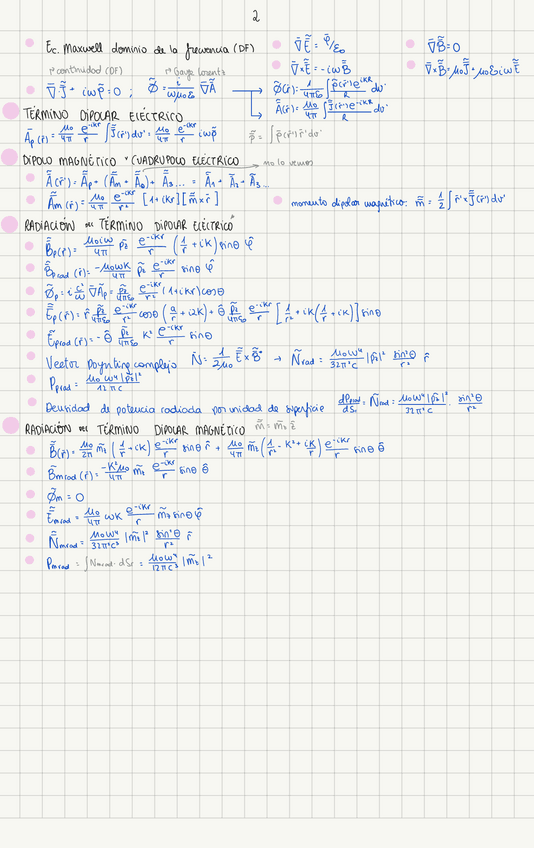 2
Ec. Maxwell dominio de la frecuencia (DF)
∇·Ẽ = ρ̃/ε₀
∇·B̃ = 0
∇×Ẽ = -iωB̃
∇×B̃ = μ₀J̃ + μ₀ε₀iωẼ
continuidad (DF)
Gauge Lorentz
∇·J̃ + iωρ̃ = 0 ;
Φ̃ = i/(ωμ₀ε₀) ∇Ã
Φ̃(r) = 1/(4πε₀) ∫ ρ̃(r') e^(-ikR)/R dv'
Ã(r) = μ₀/4π ∫ J̃(r') e^(-ikR)/R dv'
TÉRMINO DIPOLAR ELÉCTRICO
Ãp(r) = μ₀/4π e^(-ikr)/r ∫ J̃(r') dv' = μ₀/4π e^(-ikr)/r iωp̃
p̃ = ∫ ρ̃(r') r' dv'
DÍPOLO MAGNÉTICO * CUADRUPOLO ELÉCTRICO → no lo vemos
Ã(r) = Ãp + (Ãm + ÃQ) + Ã3... = Ã1 + Ã2 + Ã3...
Ãm(r) = μ₀/4π e^(-ikr)/r² [1 + ikr][m̃ × r̂]
momento dipolar magnético: m̃ = 1/2 ∫ r' × J̃(r') dv'
RADIACIÓN TÉRMINO DIPOLAR ELÉCTRICO
B̃p(r) = μ₀iω/4π p̃z e^(-ikr)/r (1/r + iK) sinθ φ̂
B̃prad(r) = -μ₀ωK/4π p̃z e^(-ikr)/r sinθ φ̂
Φ̃p = i c²/ω ∇Ãp = p̃z/4πε₀ e^(-ikr)/r² (1 + ikr) cosθ
Ẽp(r) = r̂ p̃z/4πε₀ e^(-ikr)/r² cosθ (2/r + i2K) + θ̂ p̃z/4πε₀ e^(-ikr)/r [1/r² + iK(1/r + iK)] sinθ
Ẽprad(r) = -θ̂ p̃z/4πε₀ K² e^(-ikr)/r sinθ
Vector Poynting complejo Ñ = 1/2μ₀ Ẽ × B̃* → Ñrad = μ₀ω⁴/32π²c |p̃z|² sin²θ/r² r̂
Pprad = μ₀ω⁴|p̃z|²/12πc
Densidad de potencia radiada por unidad de superficie dPrad/dSr = Ñrad = μ₀ω⁴|p̃z|²/32π²c · sin²θ/r²
RADIACIÓN TÉRMINO DIPOLAR MAGNÉTICO m̃ = m̃z ẑ
B̃(r) = μ₀/2π m̃z (1/r + iK) e^(-ikr)/r sinθ r̂ + μ₀/4π m̃z (1/r² - K² + iK/r) e^(-ikr)/r sinθ θ̂
B̃mrad(r) = -K²μ₀/4π m̃z e^(-ikr)/r sinθ θ̂
Φ̃m = 0
Ẽmrad = μ₀/4π ωK e^(-ikr)/r m̃z sinθ φ̂
Ñmrad = μ₀ω⁴/32π²c³ |m̃z|² sin²θ/r² r̂
Pmrad = ∫ Nmrad · dSr = μ₀ω⁴/12πc³ |m̃z|²